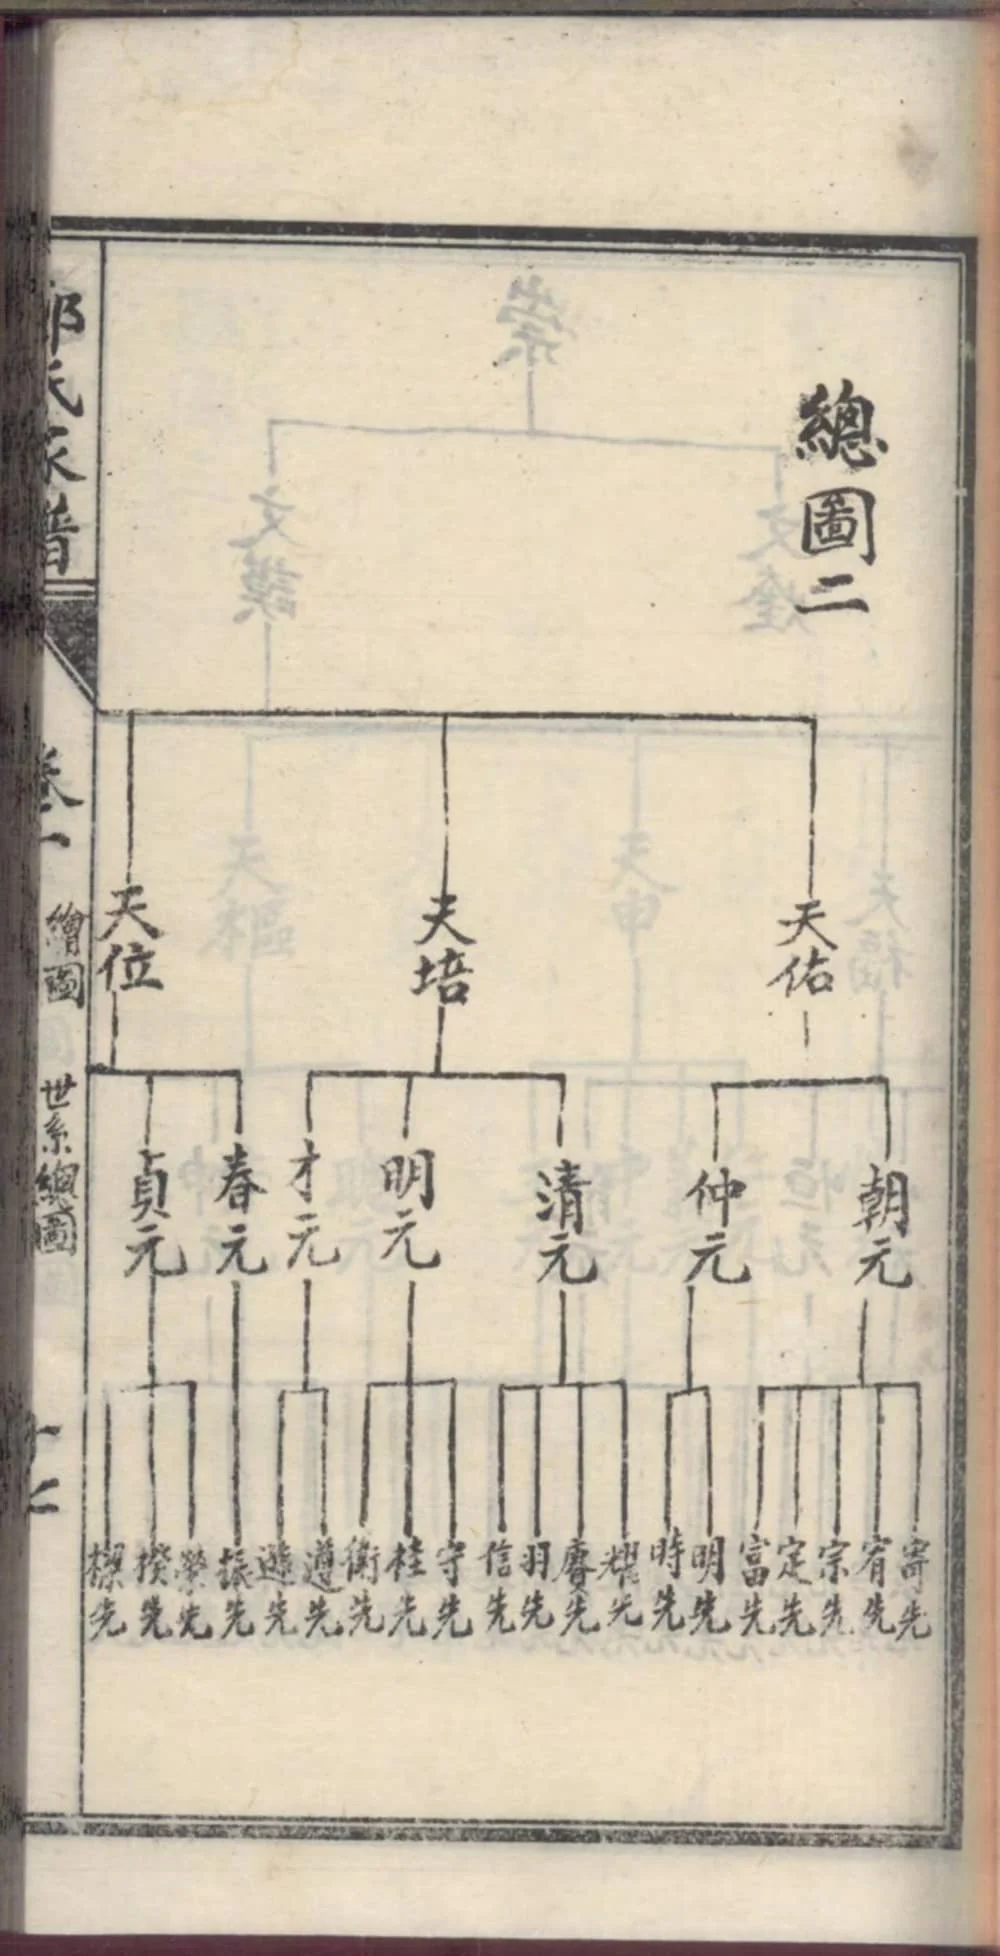 總圖二
天佑
天培
天位
朝元
仲元
清元
明元
才元
春元
貞元
寄先
宥先
宗先
定先
富先
明先
時先
耀先
賡先
羽先
信先
守先
桂先
衡先
遵先
遜先
振先
榮先
揆先
氏家譜
卷一
繪圖
世系總圖